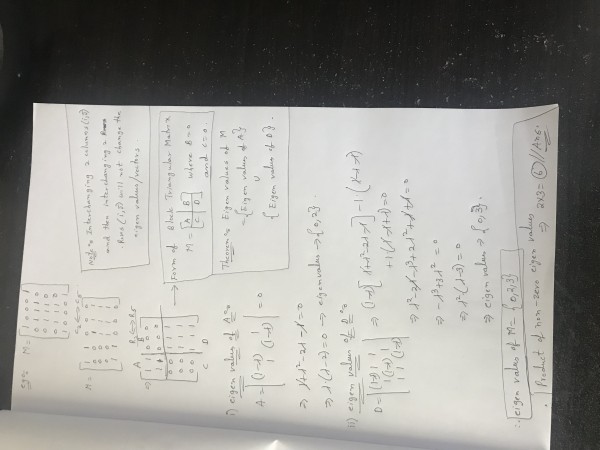 eg:- M = [1 0 0 0 1
0 1 1 1 0
0 1 1 1 0
0 1 1 1 0
1 0 0 0 1]
Note:- Interchanging 2 columns (i,j)
and then interchanging 2 Rows
Rows (i,j) will not change the
eigen values/vectors
M =
→ Form of Block Triangular Matrix
M = [A B
C D] where B = 0
and C = 0.
Theorem:- Eigen values of M
= {Eigen values of A}
∪
{Eigen values of D}.
i) eigen values of A:-
A = |(1-λ) 1
1 (1-λ)| = 0
⇒ 1+λ²-2λ-1=0
⇒ λ(λ-2)=0 → eigen values → {0,2}.
ii) eigen values of D:-
D = |(1-λ) 1 1
1 (1-λ) 1
1 1 (1-λ)|
⇒ (1-λ)[1+λ²-2λ-1] -1(1-λ-1)
+1(1-1+λ)=0
⇒ -λ³+3λ²=0
⇒ λ²(λ-3)=0
⇒ eigen values → {0,3}.
∴ eigen values of M = {0,2,3}
∴ Product of non-zero eigen values ⇒ 2x3= 6 // Ans.